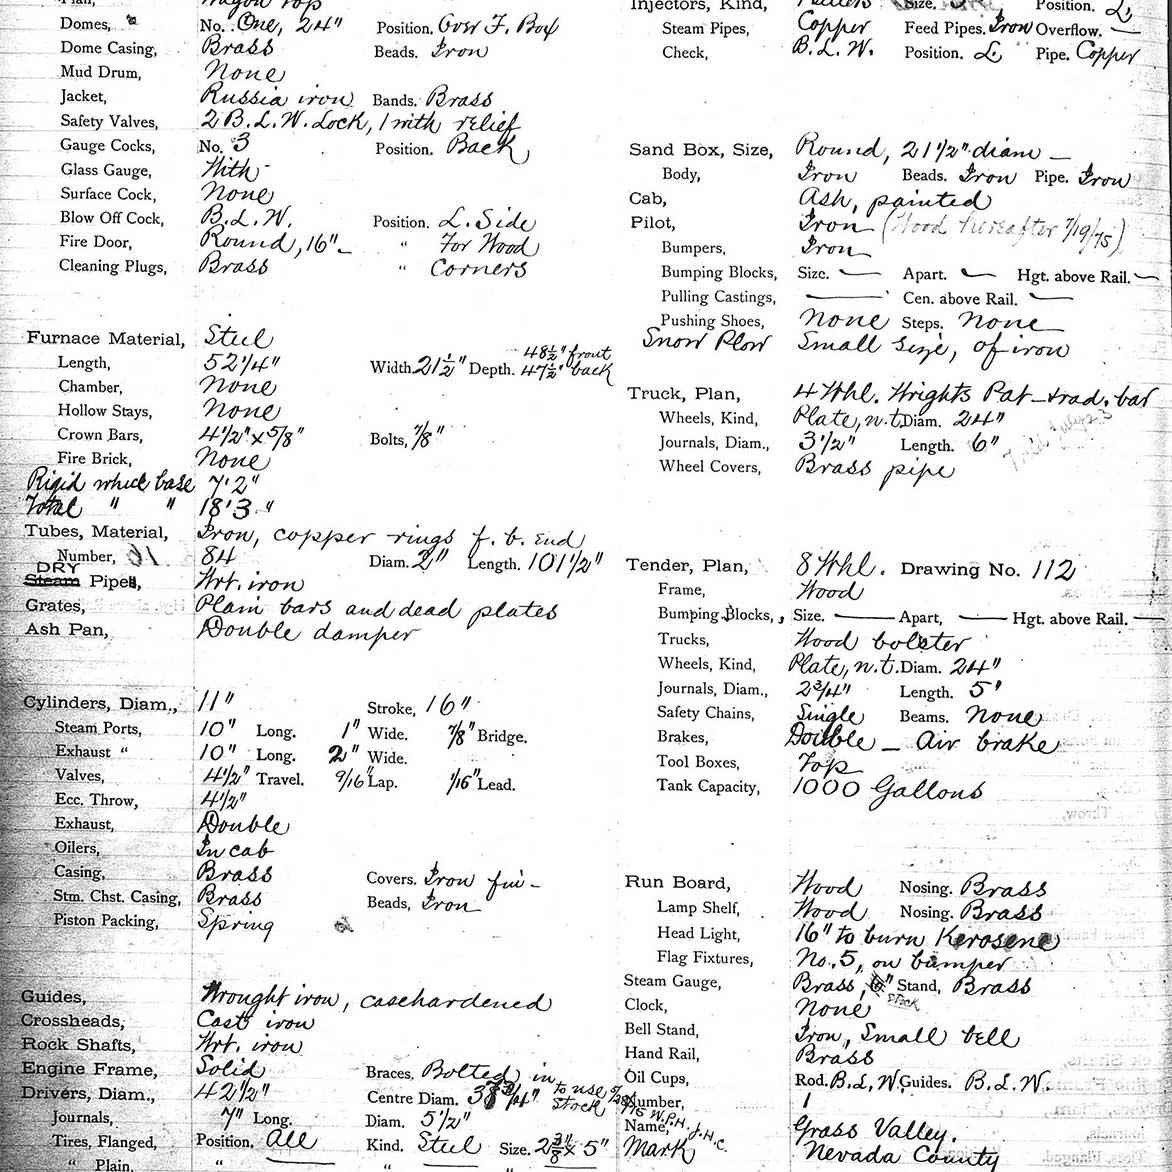 Plan, Wagon Top
Domes, No. One, 24" Position. Over F. Box
Dome Casing, Brass Beads. Iron
Mud Drum, None
Jacket, Russia iron Bands. Brass
Safety Valves, 2 B.L.W. Lock, 1 with relief
Gauge Cocks, No. 3 Position. Back
Glass Gauge, With
Surface Cock, None
Blow Off Cock, B.L.W. Position. L. Side
Fire Door, Round, 16" " For Wood
Cleaning Plugs, Brass " Corners
Furnace Material, Steel
Length, 52 1/4" Width. 21 1/2" Depth. 48 1/2" front 47 1/2" back
Chamber, None
Hollow Stays, None
Crown Bars, 4 1/2" x 5/8" Bolts, 7/8"
Fire Brick, None
Rigid wheel base 7' 2"
Total " " 18' 3"
Tubes, Material, Iron, copper rings f. b. end
Number, 84 Diam. 2" Length. 101 1/2"
DRY
Steam Pipes, Wrt. iron
Grates, Plain bars and dead plates
Ash Pan, Double damper
Cylinders, Diam., 11" Stroke, 16"
Steam Ports, 10" Long. 1" Wide. 7/8" Bridge.
Exhaust " 10" Long. 2" Wide.
Valves, 4 1/2" Travel. 9/16" Lap. 1/16" Lead.
Ecc. Throw, 4 1/2"
Exhaust, Double
Oilers, In cab
Casing, Brass Covers. Iron fin
Stm. Chst. Casing, Brass Beads, Iron
Piston Packing, Spring
Guides, Wrought iron, casehardened
Crossheads, Cast iron
Rock Shafts, Wrt. iron
Engine Frame, Solid Braces. Bolted in
Drivers, Diam., 42 1/2" Centre Diam. 37 3/4" to use stock
Journals, 7" Long. Diam. 5 1/2"
Tires, Flanged, Position. All Kind. Steel Size. 2 3/8" x 5"
" Plain. " " "
Injectors, Kind, Sellers Size. Position. L
Steam Pipes, Copper Feed Pipes. Iron Overflow. —
Check, B.L.W. Position. L. Pipe. Copper
Sand Box, Size, Round, 21 1/2" diam
Body, Iron Beads. Iron Pipe. Iron
Cab, Ash, painted
Pilot, Iron (Wood hereafter 7/19/75)
Bumpers, Iron
Bumping Blocks, Size. — Apart. — Hgt. above Rail. —
Pulling Castings, — Cen. above Rail. —
Pushing Shoes, None Steps. None
Snow Plow Small size, of iron
Truck, Plan, 4 Whl. Wrights Pat - rad. bar
Wheels, Kind, Plate, n.t. Diam. 24"
Journals, Diam., 3 1/2" Length. 6"
Wheel Covers, Brass pipe
Tender, Plan, 8 Whl. Drawing No. 112
Frame, Wood
Bumping Blocks, Size. — Apart, — Hgt. above Rail. —
Trucks, Wood bolster
Wheels, Kind, Plate, n.t. Diam. 24"
Journals, Diam., 2 3/4" Length. 5"
Safety Chains, Single Beams. None
Brakes, Double — Air brake
Tool Boxes, Top
Tank Capacity, 1000 Gallons
Run Board, Wood Nosing. Brass
Lamp Shelf, Wood Nosing. Brass
Head Light, 16" to burn Kerosene
Flag Fixtures, No. 5, on bumper
Steam Gauge, Brass, 6" Stand, Brass
stock
Clock, None
Bell Stand, Iron, Small bell
Hand Rail, Brass
Oil Cups, Rod. B.L.W. Guides. B.L.W.
Number, 1
Name, Grass Valley.
Mark Nevada County
W.P.H. J.H.C.